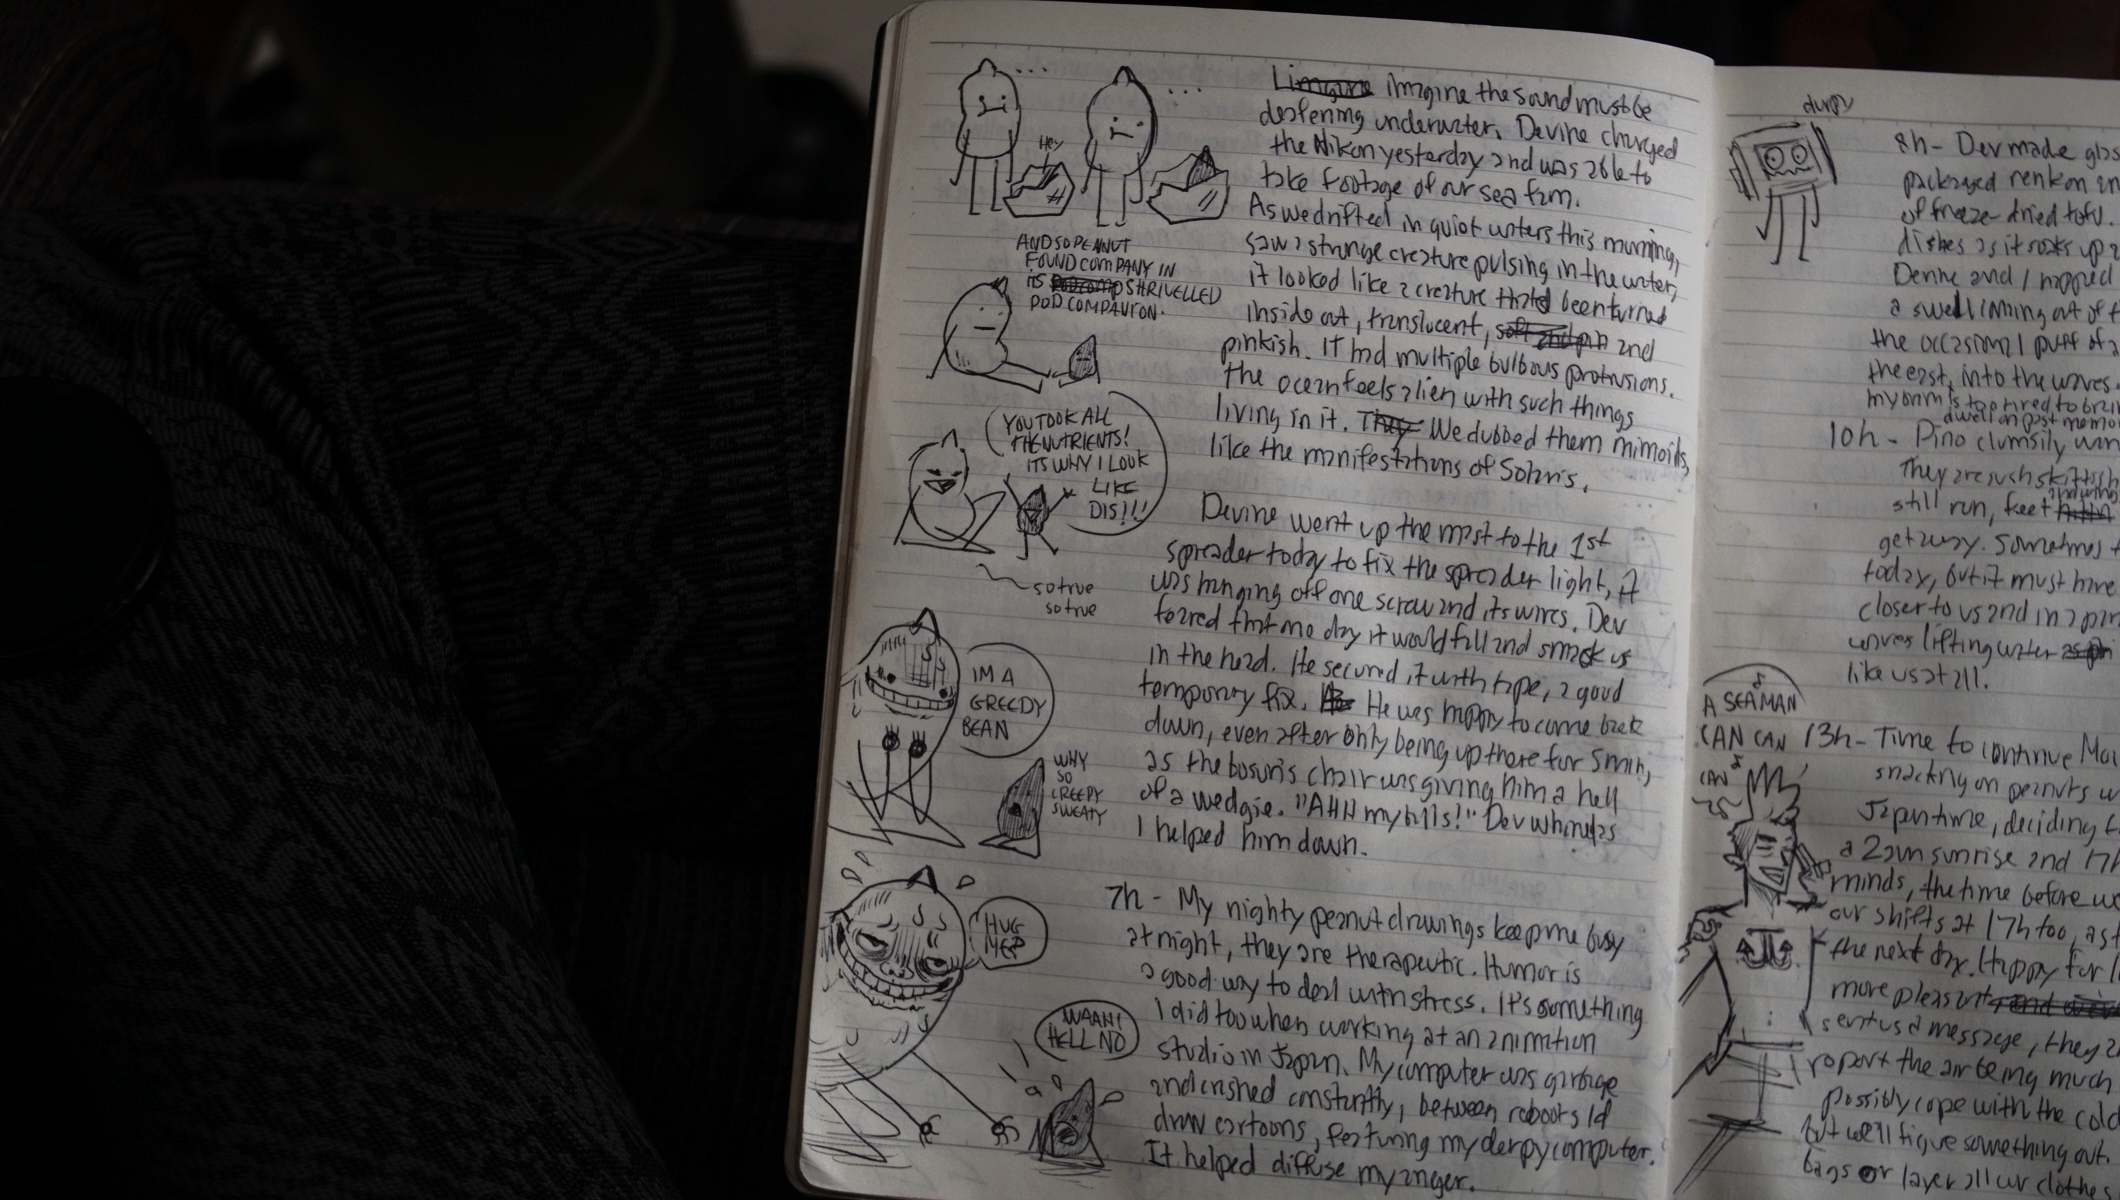 ...
...
Hey
AND SO PEANUT
FOUND COMPANY IN
ITS SHRIVELLED
POD COMPANION.
YOU TOOK ALL
THE NUTRIENTS!
ITS WHY I LOOK
LIKE
DIS!!!
so true
so true
IM A
GREEDY
BEAN
WHY
SO
CREEPY
SWEATY
HUG
ME?
WAAH!
HELL NO
I imagine imagine the sound must be
deafening underwater. Devine charged
the Nikon yesterday and was able to
take footage of our sea fam.
As we drifted in quiet waters this morning,
saw a strange creature pulsing in the water,
it looked like a creature that'd been turned
inside out, translucent, soft and pin and
pinkish. It had multiple bulbous protrusions.
The ocean feels alien with such things
living in it. They We dubbed them mimoids,
like the manifestations of Solaris.
Devine went up the mast to the 1st
spreader today to fix the spreader light, it
was hanging off one screw and its wires. Dev
feared that one day it would fall and smack us
in the head. He secured it with tape, a good
temporary fix. He was happy to come back
down, even after only being up there for 5min,
as the bosun's chair was giving him a hell
of a wedgie. "AHH my balls!" Dev whined as
I helped him down.
7h - My nighty peanut drawings keep me busy
at night, they are therapeutic. Humor is
a good way to deal with stress. It's something
I did too when working at an animation
studio in Japan. My computer was garbage
and crashed constantly, between reboots Id
draw cartoons, featuring my derpy computer.
It helped diffuse my anger.
durpy
8h - Dev made glas
packaged renkon an
of freeze-dried tofu.
dishes as it soaks up a
Devine and I napped
a swell coming out of t
the occasional puff of a
the east, into the waves.
my brain is too tired to brai
dwell on past memo
10h - Dino clumsily wan
They are such skittish
still run, feet
get away. Sometimes t
today, but it must have
closer to us and in a pan
waves lifting water as ph
like us at all.
A SEAMAN
CAN CAN
CAN
13h - Time to continue Mo
snacking on peanuts w
Japan time, deciding t
a 2am sunrise and 17h
minds, the time before we
our shifts at 17h too, as t
the next day. Happy for l
more pleasant, and
sent us a message, they a
report the air being much
possibly cope with the cold
but we'll figure something out.
bags or layer all our clothes